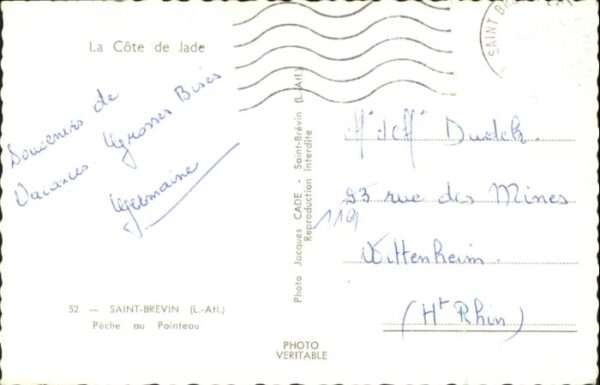 La Côte de Jade
Souvenirs de
Vacances Grosses Bises
Germaine
52 — SAINT-BREVIN (L.-Atl.)
Pêche au Pointeau
Photo Jacques CADE - Saint-Brévin (L.-Atl.)
Reproduction interdite
PHOTO
VERITABLE
SAINT
53 rue des Mines
119
Wittenheim
(Ht Rhin)